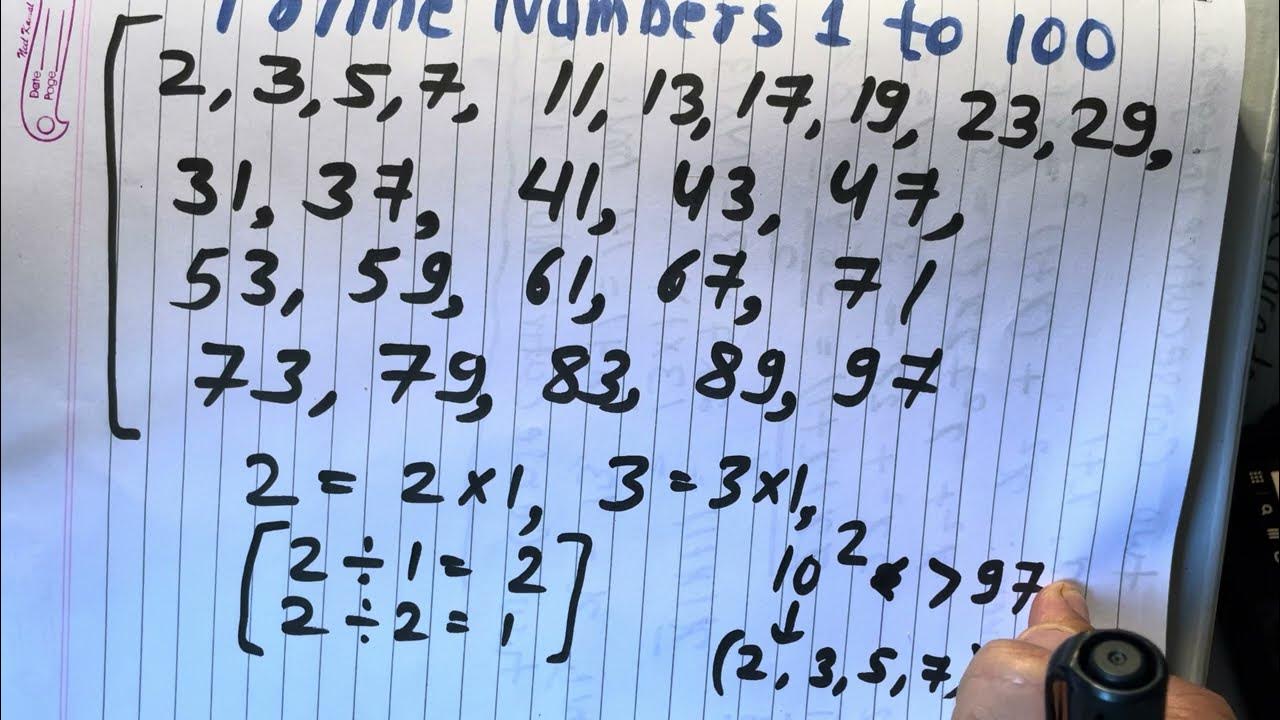 Numbers 1 to 100
Date
Page
2, 3, 5, 7, 11, 13, 17, 19, 23, 29,
31, 37, 41, 43, 47,
53, 59, 61, 67, 71
73, 79, 83, 89, 97
2 = 2 × 1, 3 = 3 × 1,
[2 ÷ 1 = 2
2 ÷ 2 = 1]
10² > 97
↓
(2, 3, 5, 7,